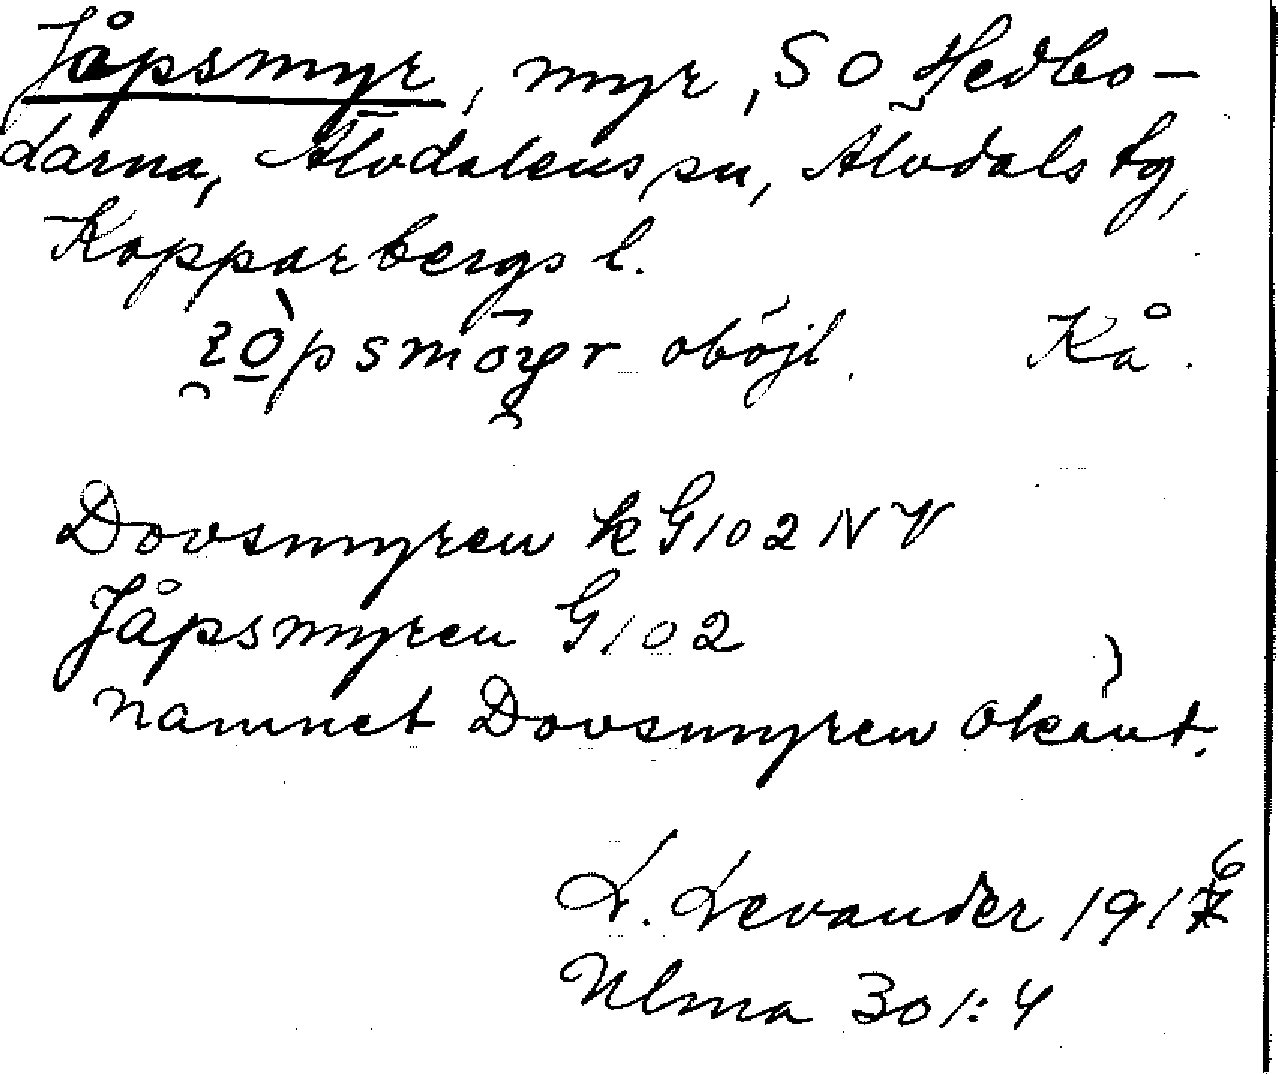 Jåpsmyr, myr, SO Hedbo-
darna, Älvdalens sn, Älvdals tg,
Kopparbergs l.
oböjl. Kå.
Dovsmyren k G102 NV
Jåpsmyren G102
namnet Dovsmyren okänt.
L. Levander 1916
Ulma 301:4